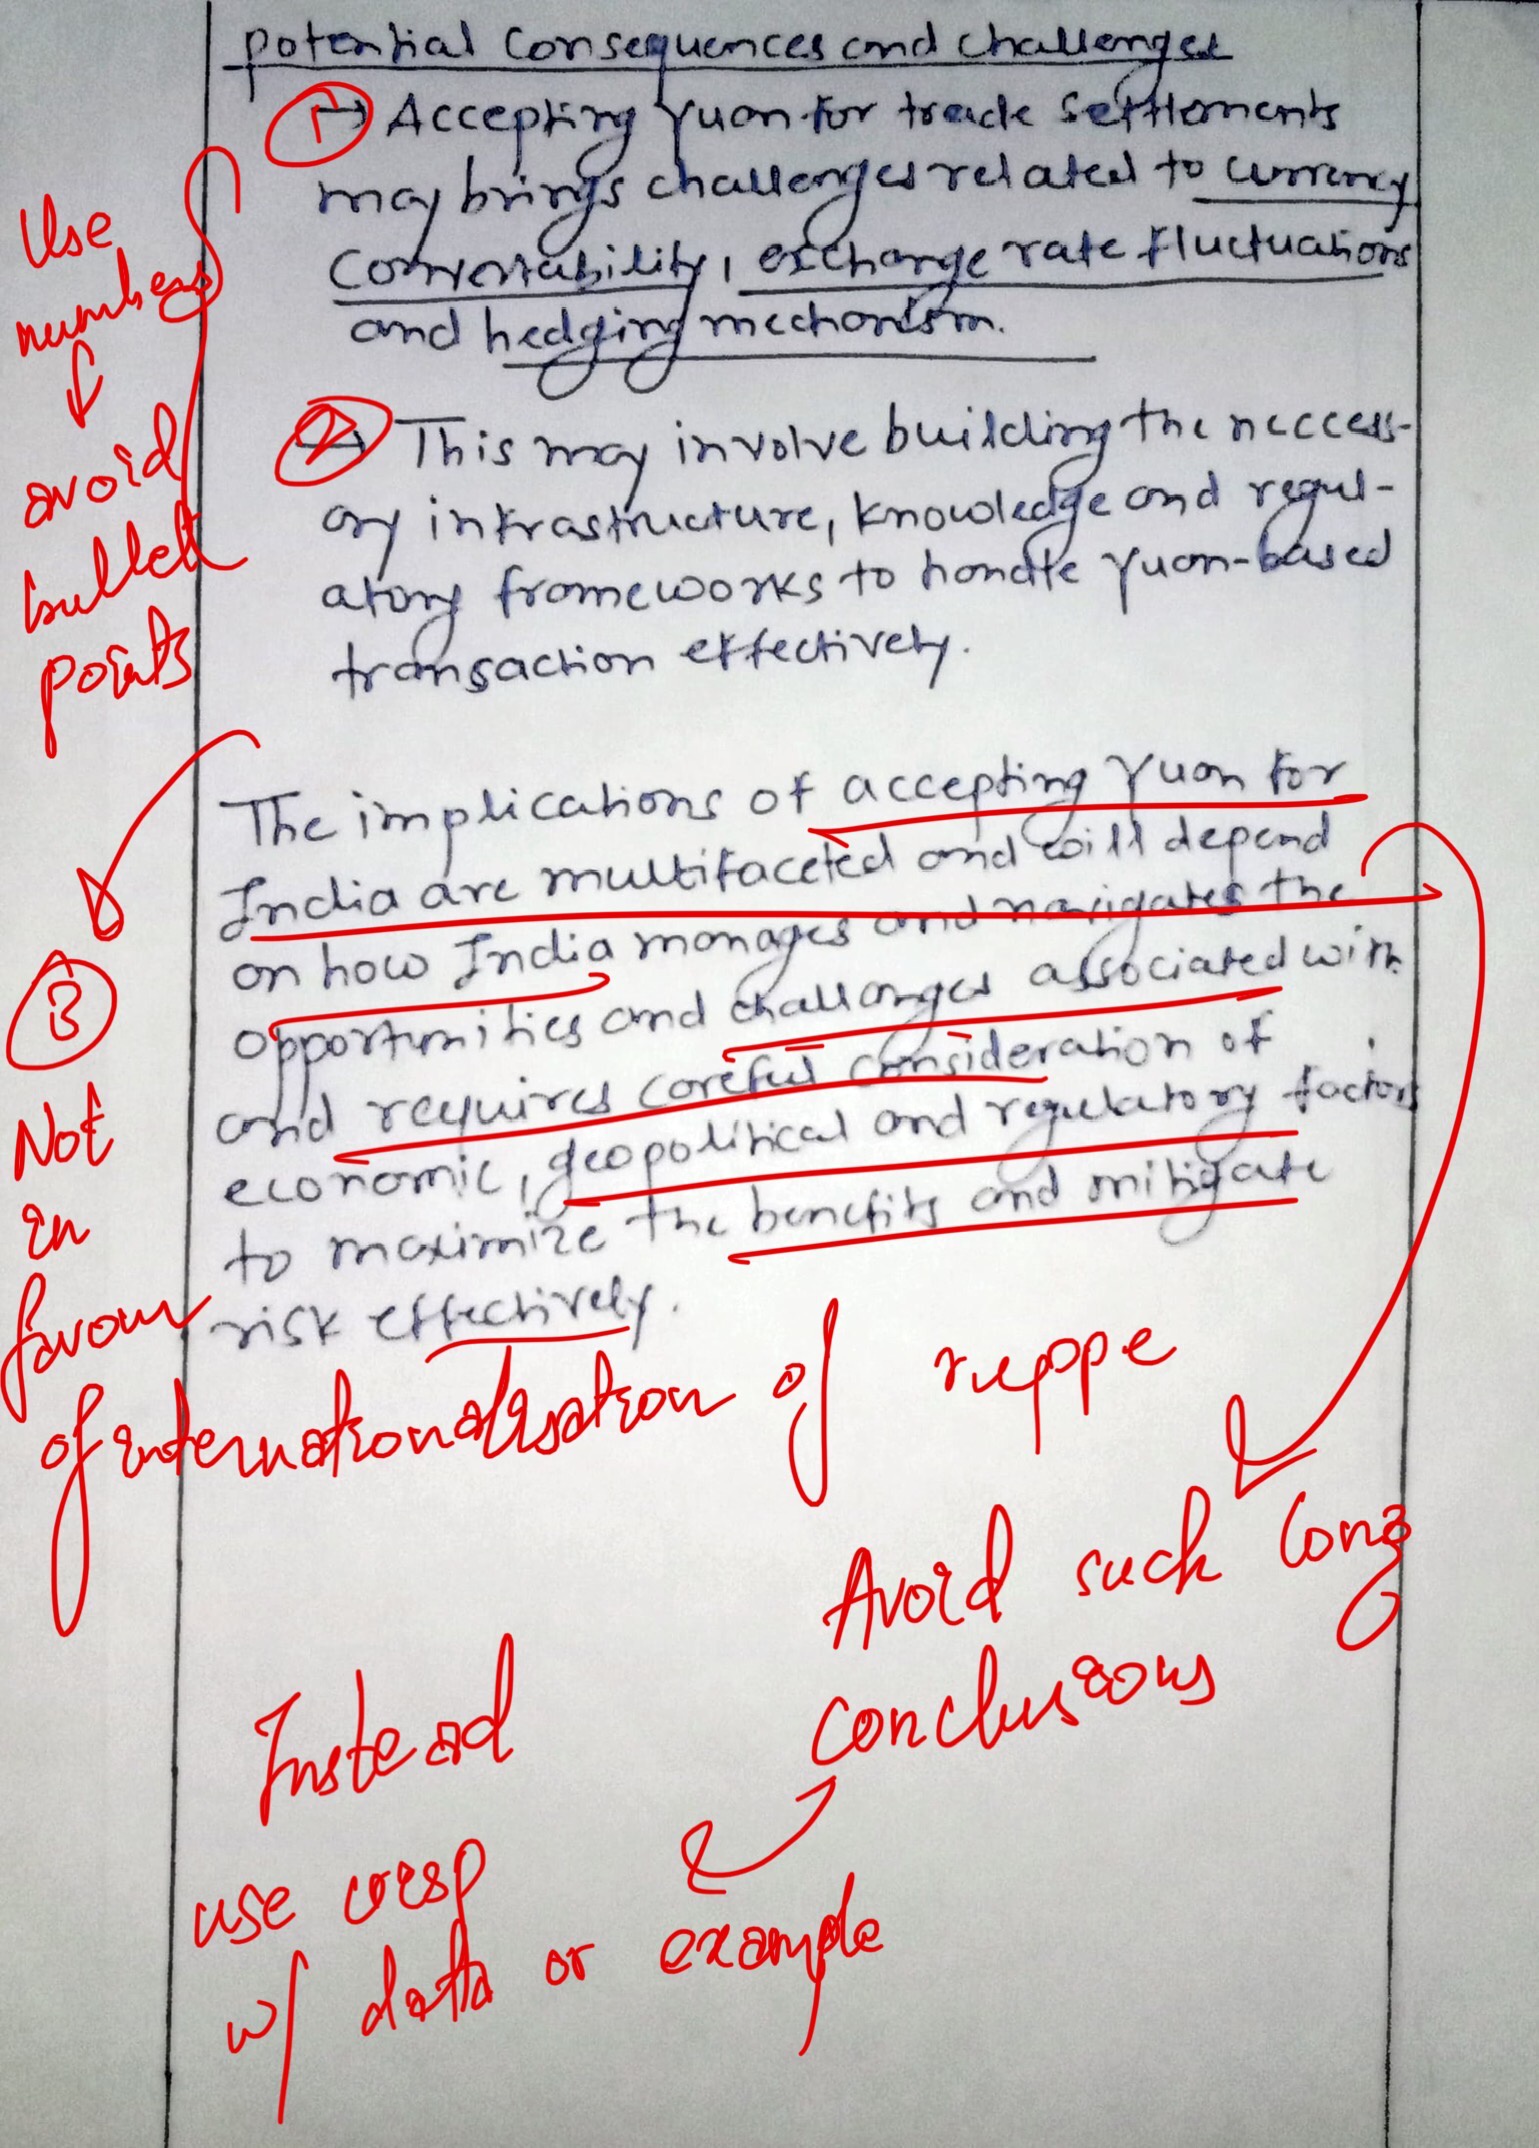 potential Consequences and challenges
1 → Accepting Yuan for trade Settlements
may brings challenges related to currency
Convertability, exchange rate fluctuations
and hedging mechanism.
Use
numbers
↓
avoid
bullet
points
2 → This may involve building the neccess-
ary infrastructure, knowledge and regul-
atory frameworks to handle Yuan-based
transaction effectively.
The implications of accepting Yuan for
India are multifaceted and will depend
on how India manages and navigates the
opportunities and challanges associated with
and requires careful consideration of
economic, geopolitical and regulatory factors
to maximize the benefits and mitigate
risk effectively.
3
Not
in
favour
of internationalisation of ruppe
Avoid such long
conclusions
Instead
use crisp
w/ data or example